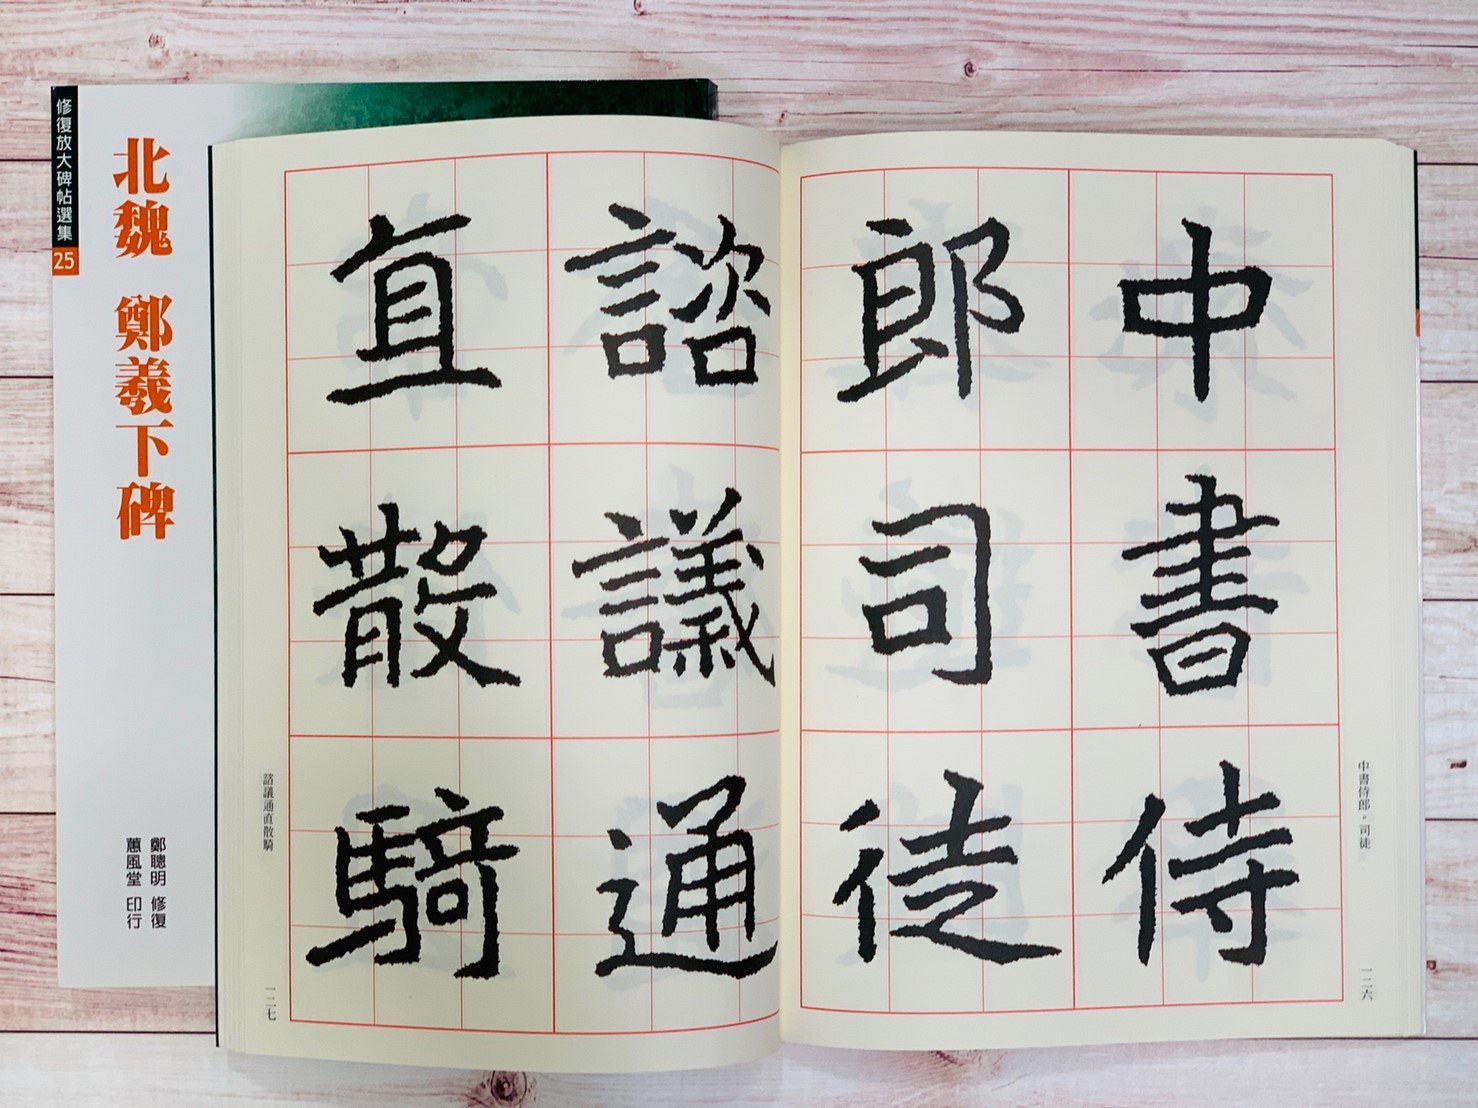 修復放大碑帖選集
25
北魏 鄭羲下碑
鄭聰明 修復
蕙風堂 印行
中書侍
郎司徒
諮議通
直散騎
中書侍郎。司徒
一二六
諮議通直散騎
一二七